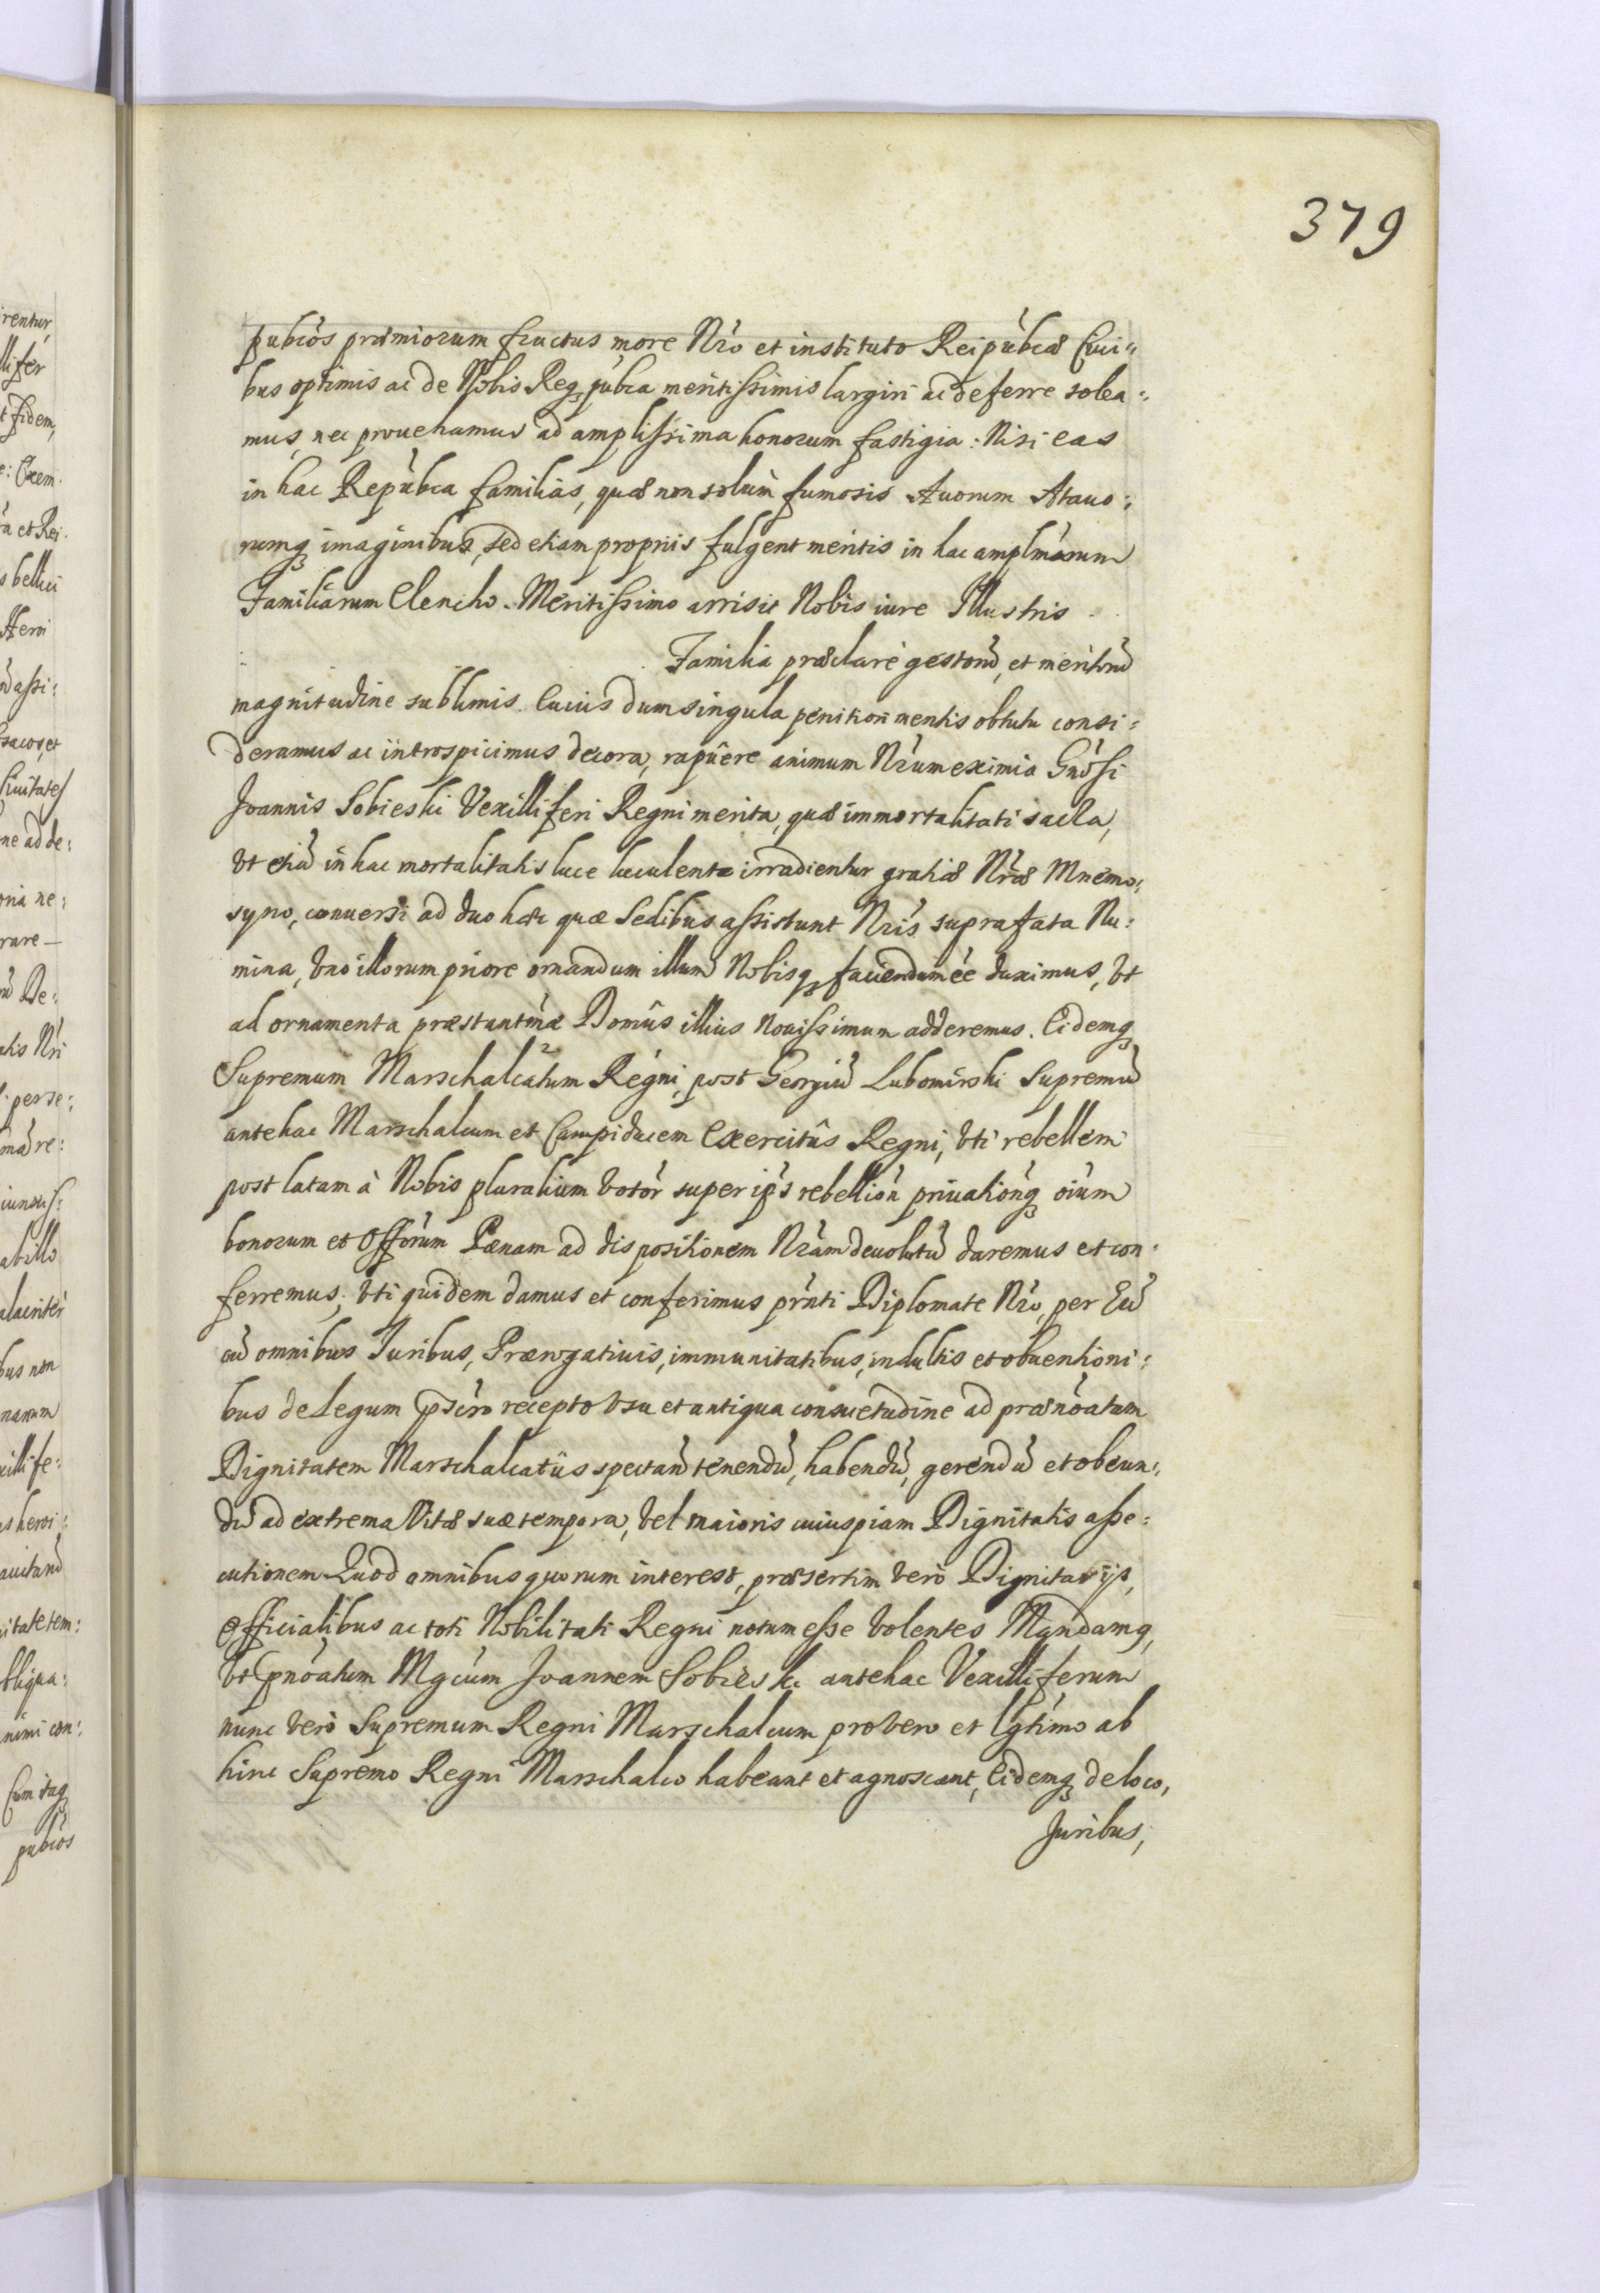 379
pubcos præmiorum fructus more Nro et instituto Reipubcæ Civi:
bus optimis ac de Nobis Reqz pubca meritissimis largiri ac deferre solea:
mus, nec provehamus ad amplissima honorum fastigia: Nisi eas
in hac Repubca familias, quæ non solum fumosis Auorum Atauo:
rumqz imaginibus, sed etiam proprijs fulgent meritis in hac amplmarum
Familiarum Elencho. Meritissimo arrisit Nobis iure Illustris
Familia præclarè gestorũ, et meritorũ
magnitudine sublimis. Cuius dum singula penitiori mentis obtutu consi:
deramus ac introspicimus decora, rapuere animum Nrum eximia Gnosi
Joannis Sobieski Vexilliferi Regni merita, quæ immortalitati sacra,
vt etiã in hac mortalitatis luce luculenta irradientur gratiæ Nræ Mnemo:
syno, conuersi ad duo hæc quæ Sedibus assistunt Nris suprafata Nu:
mina, vno illorum priore ornandum illum Nobisqz faciendum ee duximus, vt
ad ornamenta præstantmæ Domûs illius nouissimum adderemus. Eidemqz
Supremum Marschalcatum Regni, post Georgiũ Lubomirski Supremũ
antehac Marschalcum et Campiducem Exercitûs Regni, vti rebellem
post latam à Nobis pluralium votor super ips rebellion priuationqz oium
bonorum et Offorum Pœnam ad dispositionem Nram deuolutũ daremus et con:
ferremus, vti quidem damus et conferimus prnti Diplomate Nro, per Eũ
cũ omnibus Juribus, Prærogatiuis, immunitatibus, indultis et obuentioni:
bus de Legum pscro recepto vsu et antiqua consuetudine ad prænoatam
Dignitatem Marschalcatûs spectan tenendũ, habendũ, gerendũ et obeun:
dũ ad extrema Vitæ suæ tempora, vel maioris cuiuspiam Dignitatis asse:
cutionem Quod omnibus quorum interest, præsertim verò Dignitarijs,
Officialibus ac toti Nobilitati Regni notum esse volentes Mandamq,
vt Pnoatum Mgcum Joannem Sobieski antehac Vexilliferum
nunc verò Supremum Regni Marschalcum pro vero et lgtimo ab
hinc Supremo Regni Marschalco habeant et agnoscant, Eidemqz de loco,
Juribus,
rentur
llifer
t fidem,
: Exem:
a et Rei:
s bellici
Heroi
assi:
ne ad de:
ona ne:
rare
De:
Nri
perse:
re:
abillo
alacriter
bus non
narum
xillife:
s heroi:
itatetem:
bliqua:
nimi con:
Cum itaqz
pubcos